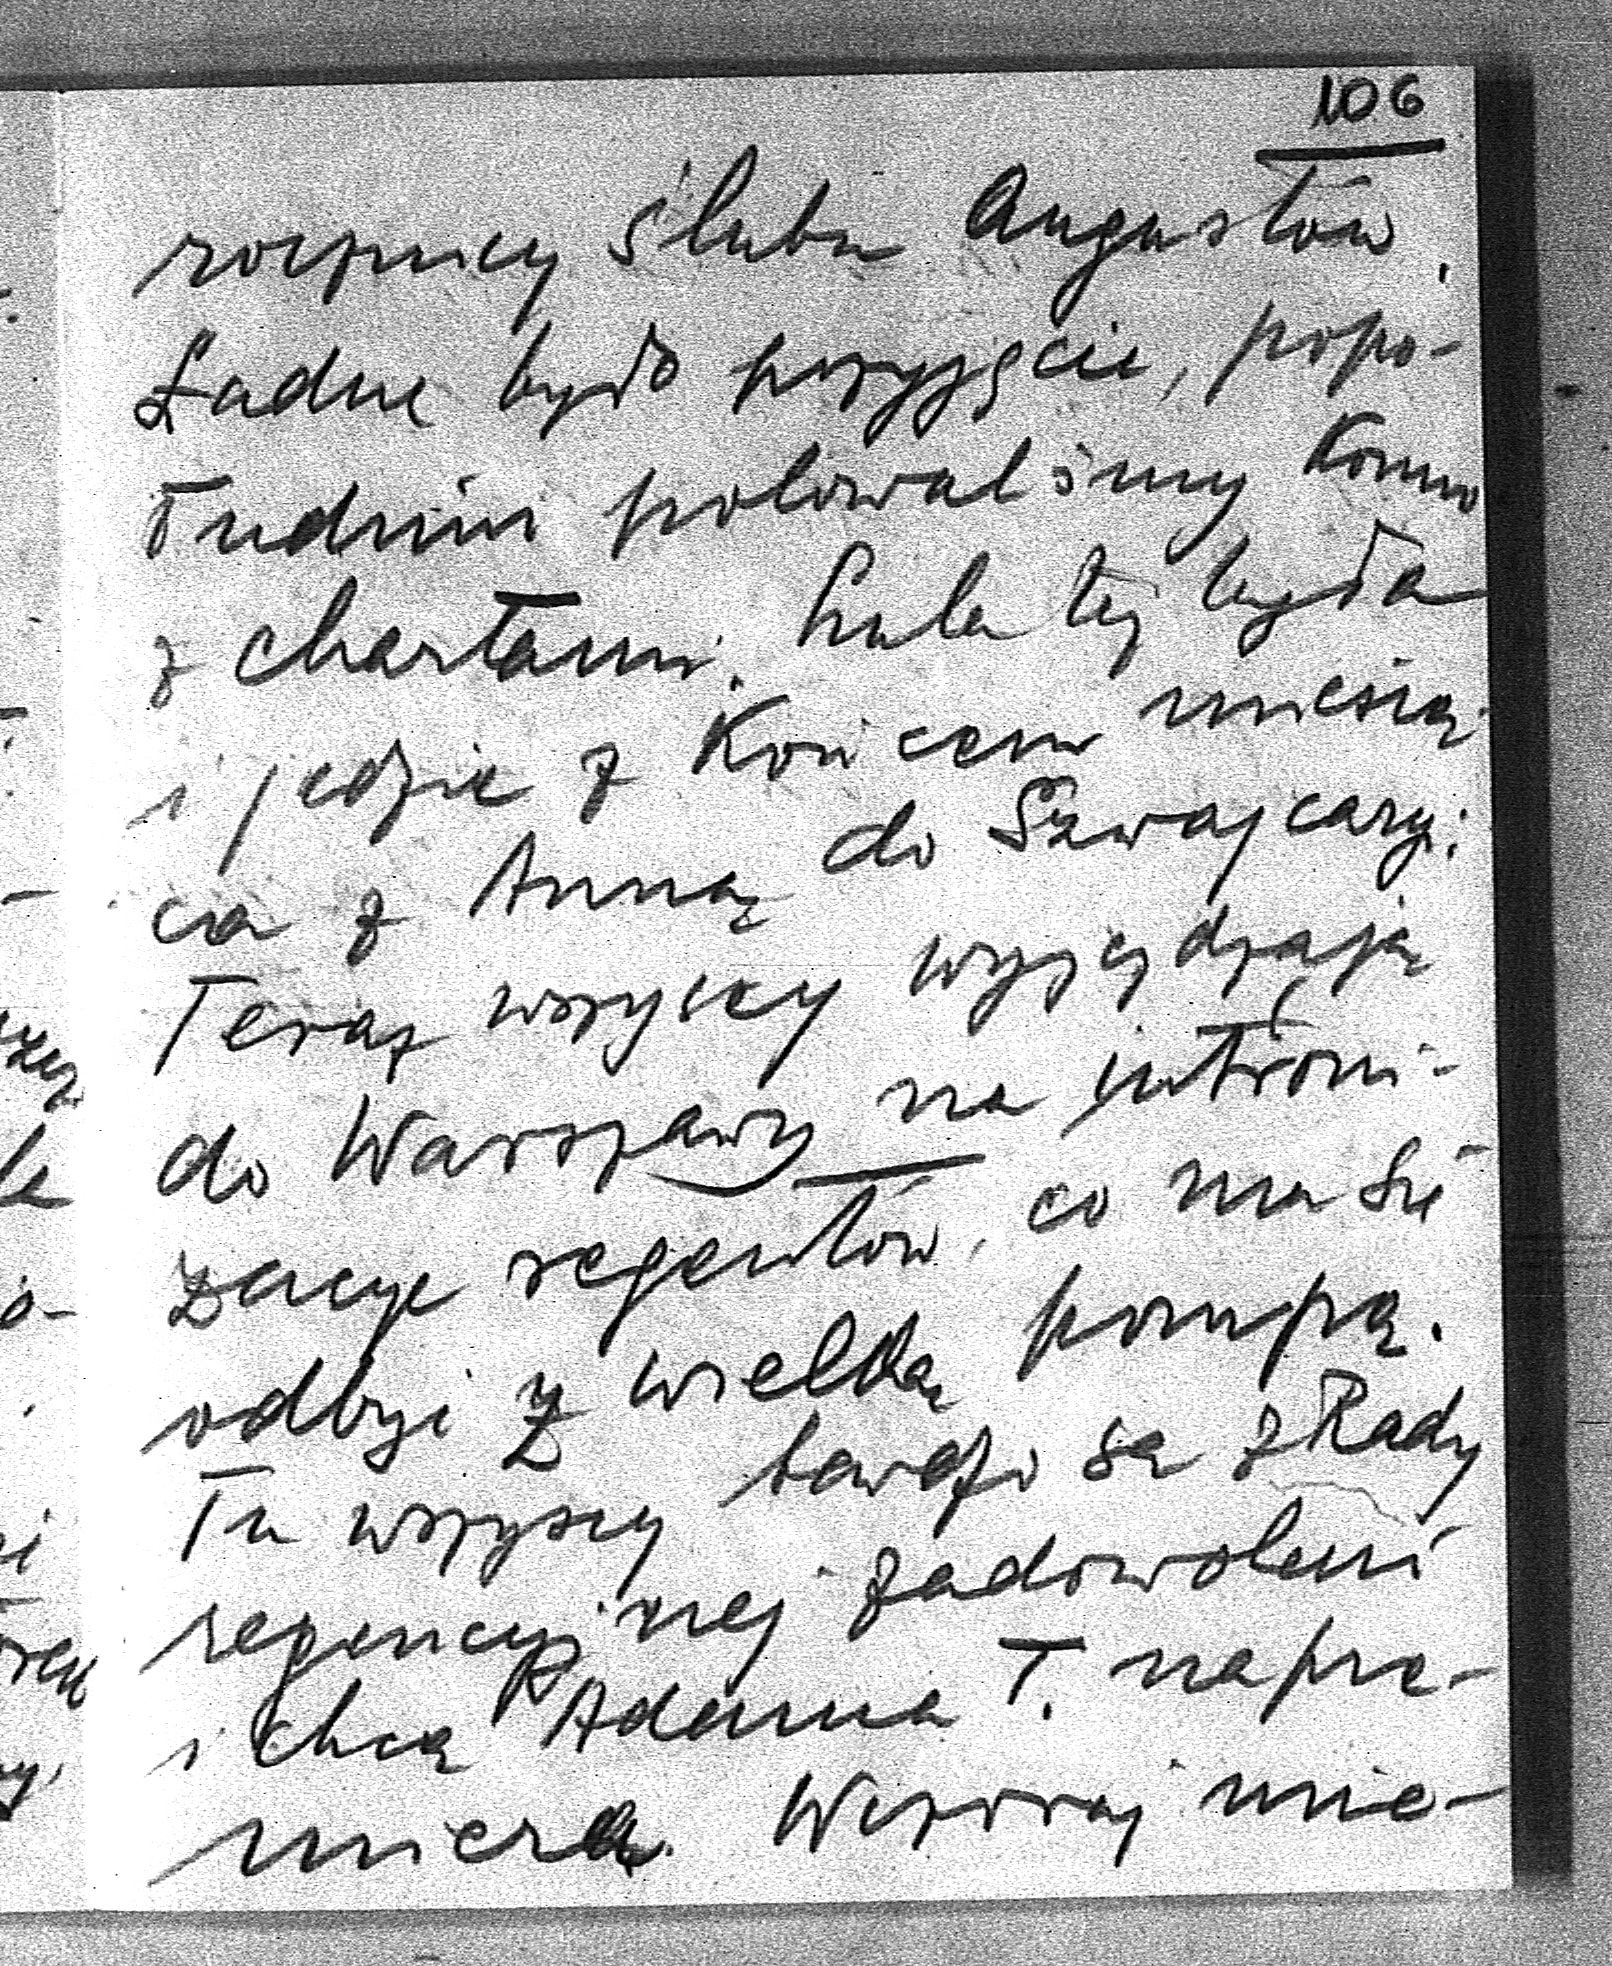 106
rocznicy ślubu Augustów.
Ładne było przyjęcie, popo-
łudniu polowaliśmy konno
z chartami. Lula tej była
i jedzie z końcem miesią-
ca z Anną do Szwajcaryi.
Teraz wszyscy wyjeżdżają
do Warszawy na intrioni-
zacye regentów, co ma się
odbyć z wielką pompą.
Tu wszyscy bardzo są z Rady
regencyjnej zadowoleni
i chcą Adama T. na pre-
miera. Wczoraj mie-